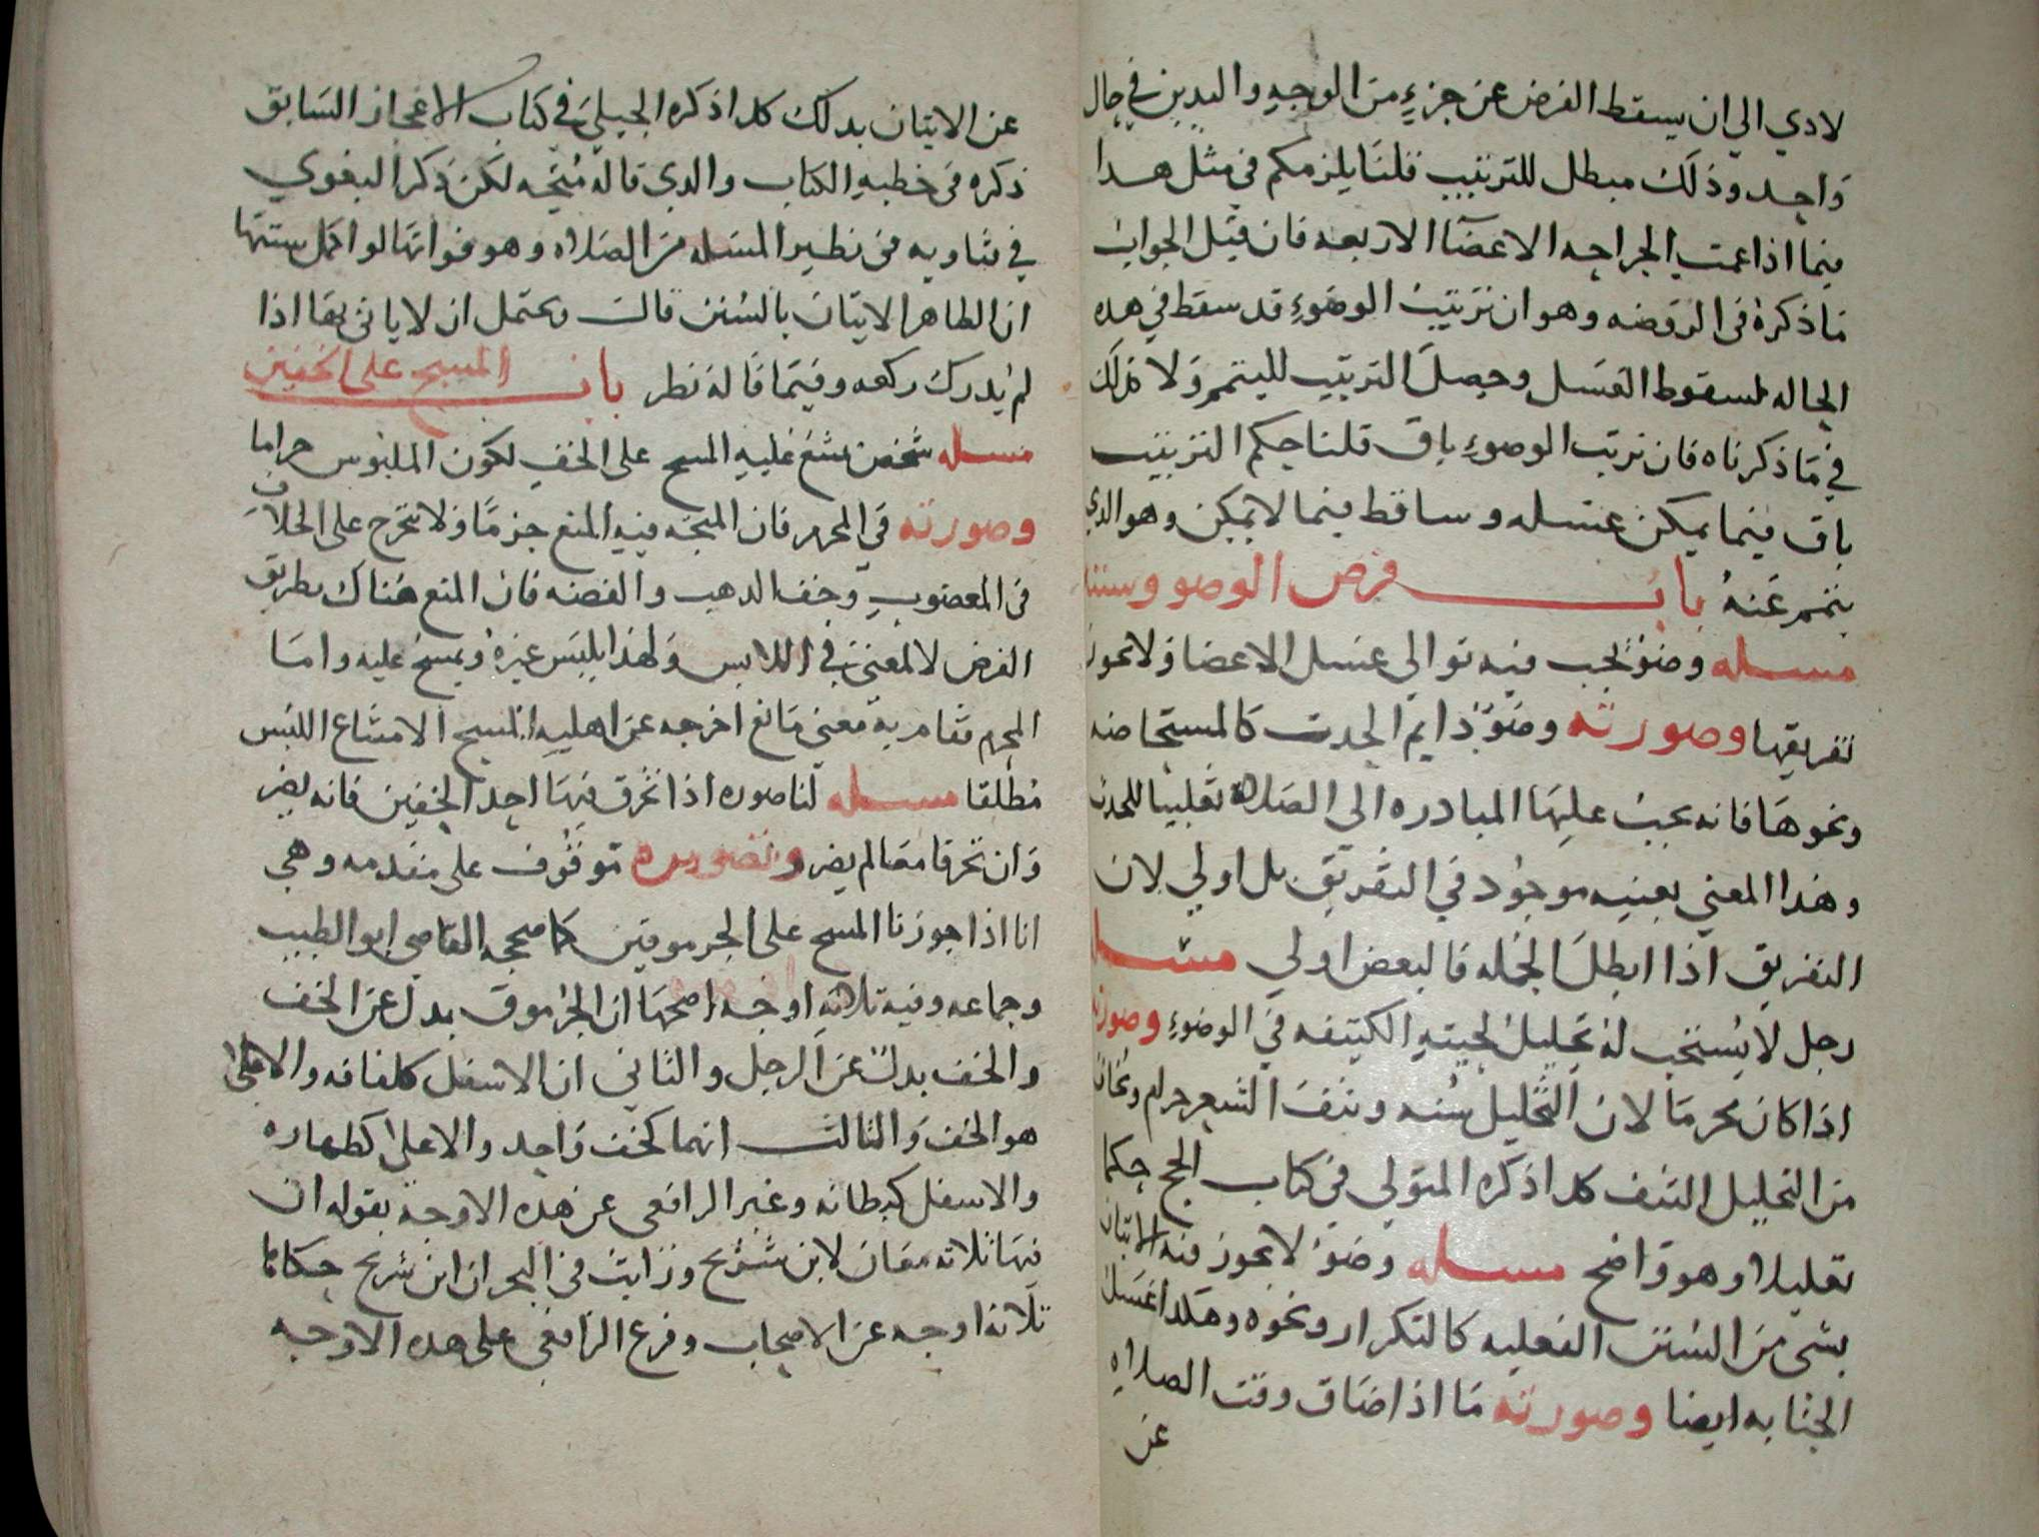 لادي الي ان يسقط الفرض عن جزء من الوجه واليدين في حال
واحد وذلك مبطل للترتيب قلنا يلزمكم في مثل هدا
فيما اذا عمت الجراحه الاعضا الاربعه فان قيل الجواب
ما ذكره في الروضه وهو ان ترتيب الوضوء قد سقط في هده
الحاله لسقوط الغسل وحصل الترتيب للتيمم ولا كذلك
في ما ذكرناه فان ترتيب الوضوء باق قلنا حكم الترتيب
باق فيما يمكن غسله وساقط فيما لا يمكن وهو الدي
يتيمم عنه باب فرض الوضو وسننه
مسله وضوء يجب فيه توالى غسل الاعضا ولا يجوز
تفريقها وصورته وضوء دايم الحدث كالمستحاضه
ونحوها فانه يجب عليها المبادره الى الصلاة تقليلا للحدث
وهذا المعني بعينه موجود في التفريق بل اولي لان
التفريق اذا ابطل الجمله فالبعض اولي مسله
رجل لا يستحب له تخليل لحيته الكثيفه في الوضوء وصورته
اذا كان محرما لان التخليل سنه ونتف الشعر حرام ويخاف
من التخليل النتف كدا ذكره المتولي في كتاب الحج حكما
تعليلا وهو واضح مسله وضوء لا يجوز فيه الاتيان
بشى من السنن الفعليه كالتكرار ونحوه وهكدا غسل
الجنابه ايضا وصورته ما اذا ضاق وقت الصلاه
عن
عن الاتيان بدلك كدا ذكره الجيلي في كتاب الاعجاز السابق
ذكره في خطبه الكتاب والدي قاله متجه لكن ذكر البغوي
في فتاويه في نظير المسله من الصلاه وهو فواتها لو اكمل سننها
ان الظاهر الاتيان بالسنن قال ويحتمل ان لا ياتي بها اذا
لم يدرك ركعه وفيما قاله نظر باب المسح على الخفين
مسله شخص يمتنع عليه المسح على الخف لكون الملبوس حراما
وصورته في المحرم فان المتجه فيه المنع جزما ولا يتخرج على الخلاف
في المغصوب وخف الدهب والفضه فان المنع هناك بطريق
العرض لا لمعني في اللابس ولهذا يلبس غيره ويمسح عليه واما
المحرم فقام به معني مانع اخرجه عن اهليه المسح الامتناع اللبس
مطلقا مسله لنا صوره اذا تخرق فيها احد الخفين فانه يضر
وان تخرقا معا لم يضر وتصويره موقوف على مقدمه وهي
انا اذا جوزنا المسح على الجرموقين كما صححه القاضي ابو الطيب
وجماعه وفيه ثلاثه اوجه اصحها ان الجرموق بدل عن الخف
والخف بدل عن الرجل والثاني ان الاسفل كلفافه والاعلى
هو الخف والثالث انهما كخف واحد والاعلى كظهاره
والاسفل كبطانه وعبر الرافعي عن هده الاوجه بقوله ان
فيها ثلاثه معان لابن شريح ورايت في البحر ان ابن شريح حكاها
ثلاثه اوجه عن الاصحاب وفرع الرافعي على هده الاوجه